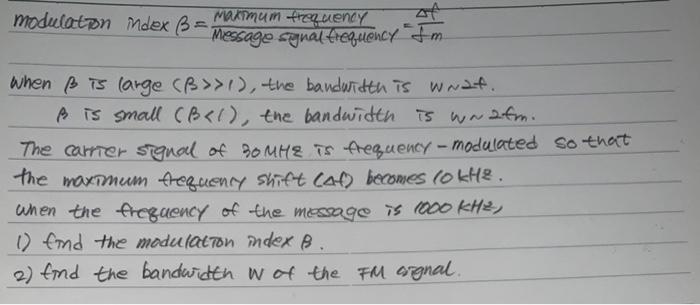 modulation index β = Maximum frequency / Message signal frequency = Δf / fm
When β is large (β>>1), the bandwidth is W~2f.
β is small (β<1), the bandwidth is W~2fm.
The carrier signal of 30MHz is frequency-modulated so that
the maximum frequency shift (Δf) becomes 10kHz.
When the frequency of the message is 1000 kHz,
1) find the modulation index β.
2) find the bandwidth W of the FM signal.